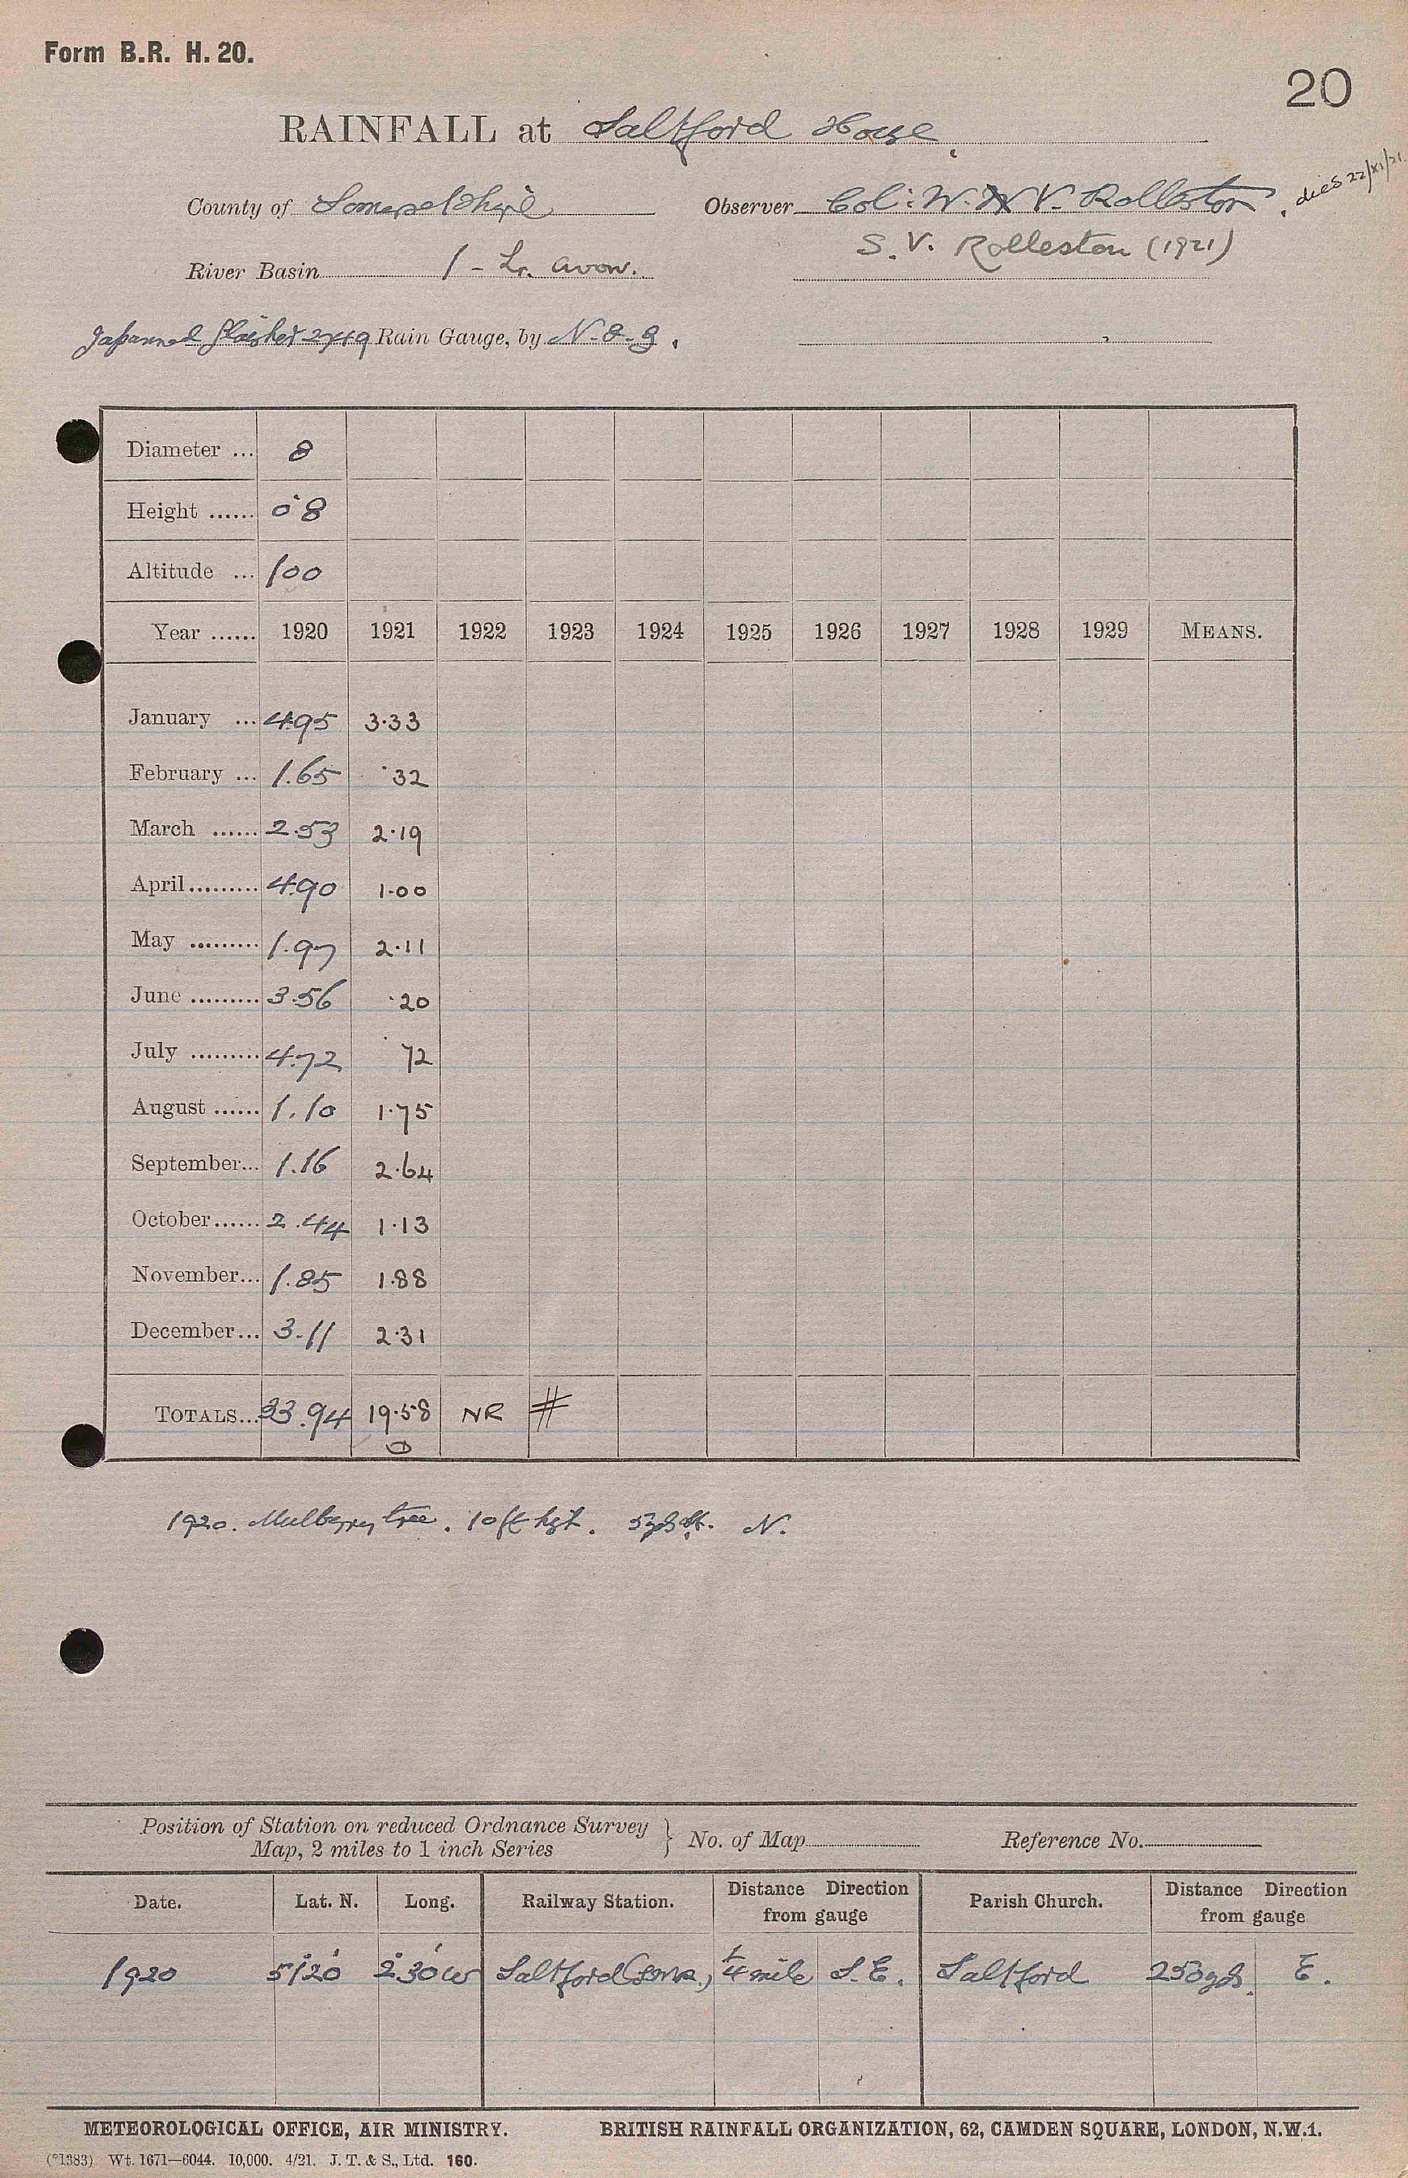 Form B.R. H. 20.
20
RAINFALL at Saltford House
County of Somersetshire Observer Col: W. V. Rolleston, died 22/XI/21.
S. V. Rolleston (1921)
River Basin 1 - Lr. Avon.
Japanned Glaisher 2749 Rain Gauge, by N. & Z.
Diameter ... 8
Height ...... 0·8
Altitude ... 100
Year ...... 1920 1921 1922 1923 1924 1925 1926 1927 1928 1929 MEANS.
January ... 4.95 3·33
February ... 1.65 ·32
March ...... 2.53 2·19
April ......... 4.90 1·00
May ......... 1.97 2·11
June ......... 3.56 ·20
July ......... 4.72 ·72
August ...... 1.10 1·75
September... 1.16 2·64
October ...... 2.44 1·13
November... 1.85 1·88
December... 3.11 2·31
TOTALS... 33.94 19·58 NR #
1920. Mulberry tree. 10 ft hgt. N.
Position of Station on reduced Ordnance Survey
Map, 2 miles to 1 inch Series } No. of Map Reference No.
Date. Lat. N. Long. Railway Station. Distance Direction from gauge Parish Church. Distance Direction from gauge
1920 51°20' 2°30'W Saltford 1/4 mile S.E. Saltford 250 yds. E.
METEOROLOGICAL OFFICE, AIR MINISTRY. BRITISH RAINFALL ORGANIZATION, 62, CAMDEN SQUARE, LONDON, N.W.1.
(*1383) Wt. 1671—6044. 10,000. 4/21. J. T. & S., Ltd. 160.